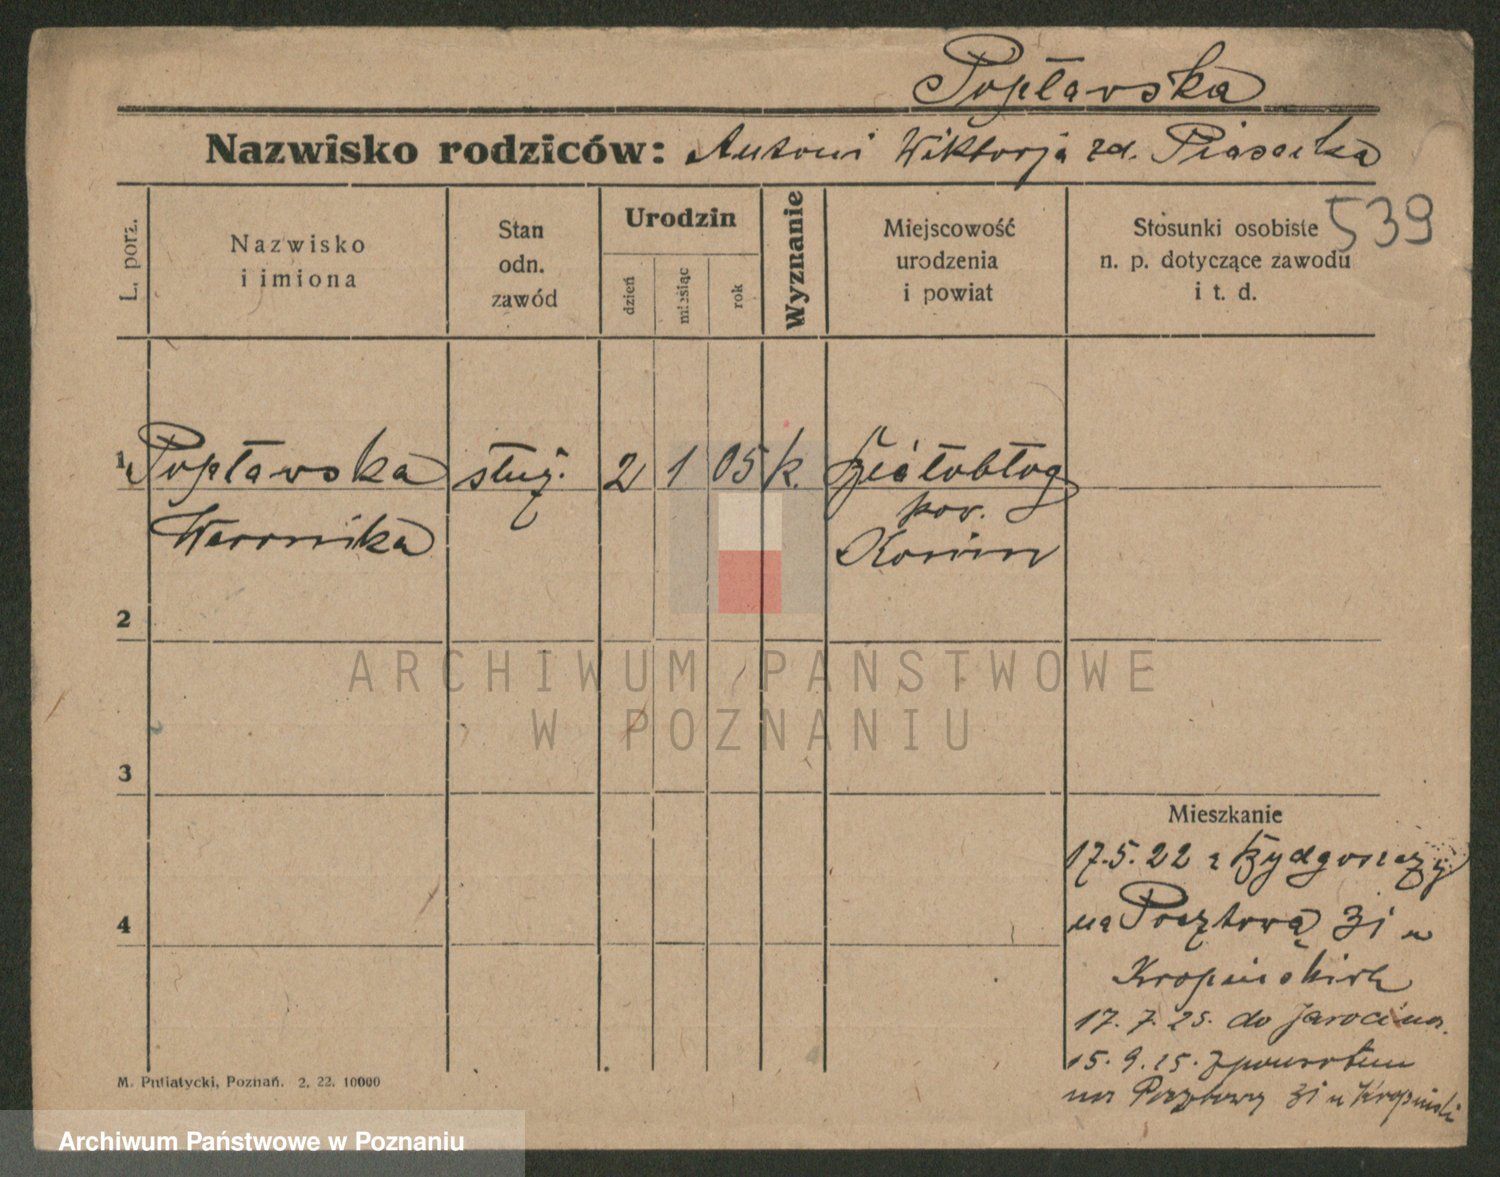 Popławska
Nazwisko rodziców: Antoni Wiktorja zd. Piasecka
539
L. porz.
Nazwisko
i imiona
Stan
odn.
zawód
Urodzin
dzień
miesiąc
rok
Wyznanie
Miejscowość
urodzenia
i powiat
Stosunki osobiste
n. p. dotyczące zawodu
i t. d.
1 Popławska służ. 2 1 05 k.
Weronika
pow.
Konin
2
ARCHIWUM PAŃSTWOWE
W POZNANIU
3
4
Mieszkanie
17.5.22 z Bydgoszczy
na Pocztową 31 u
Kropińskich
17.7.25. do Jarocina.
15.9.25. z powrotem
na Pocztowy 31 u Kropiński
M. Putiatycki, Poznań. 2, 22. 10000
Archiwum Państwowe w Poznaniu